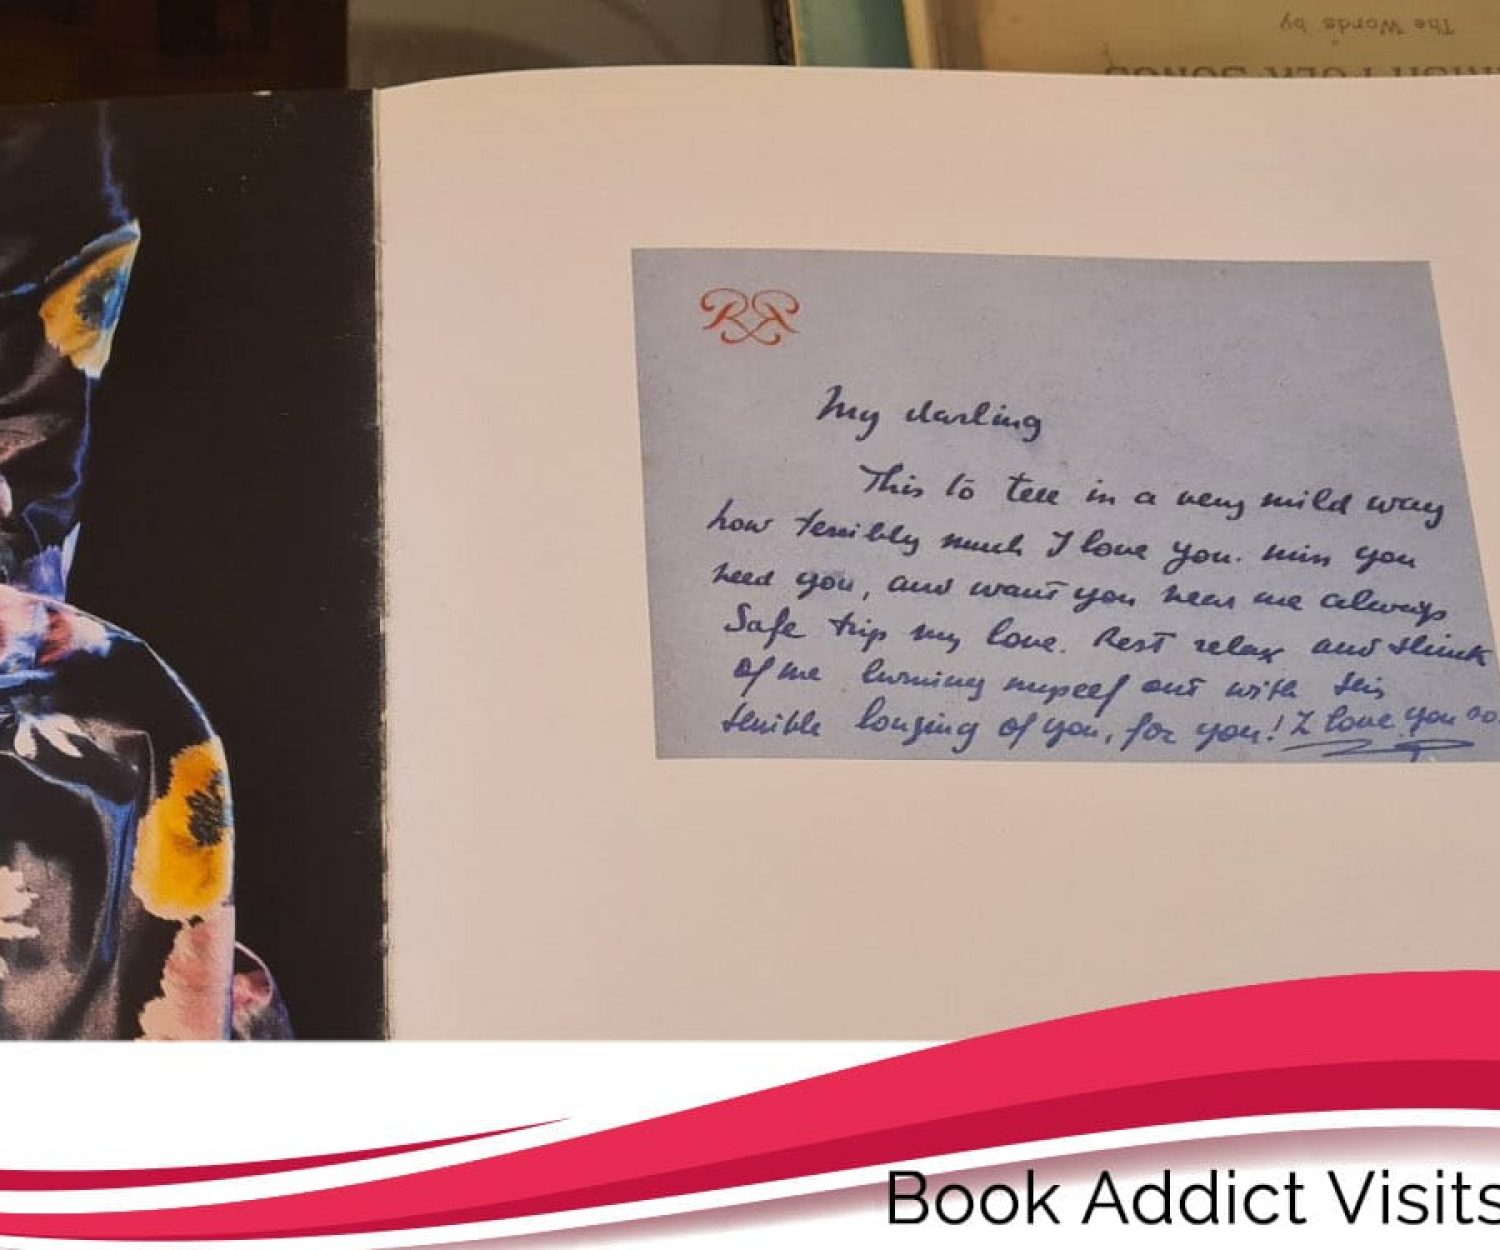 The Words by
IRISH FOLK SONGS
My darling
This to tell in a very mild way
how terribly much I love you. miss you
need you, and want you near me always
Safe trip my love. Rest relax and think
of me burning myself out with this
terrible longing of you, for you! I love you
Book Addict Visits